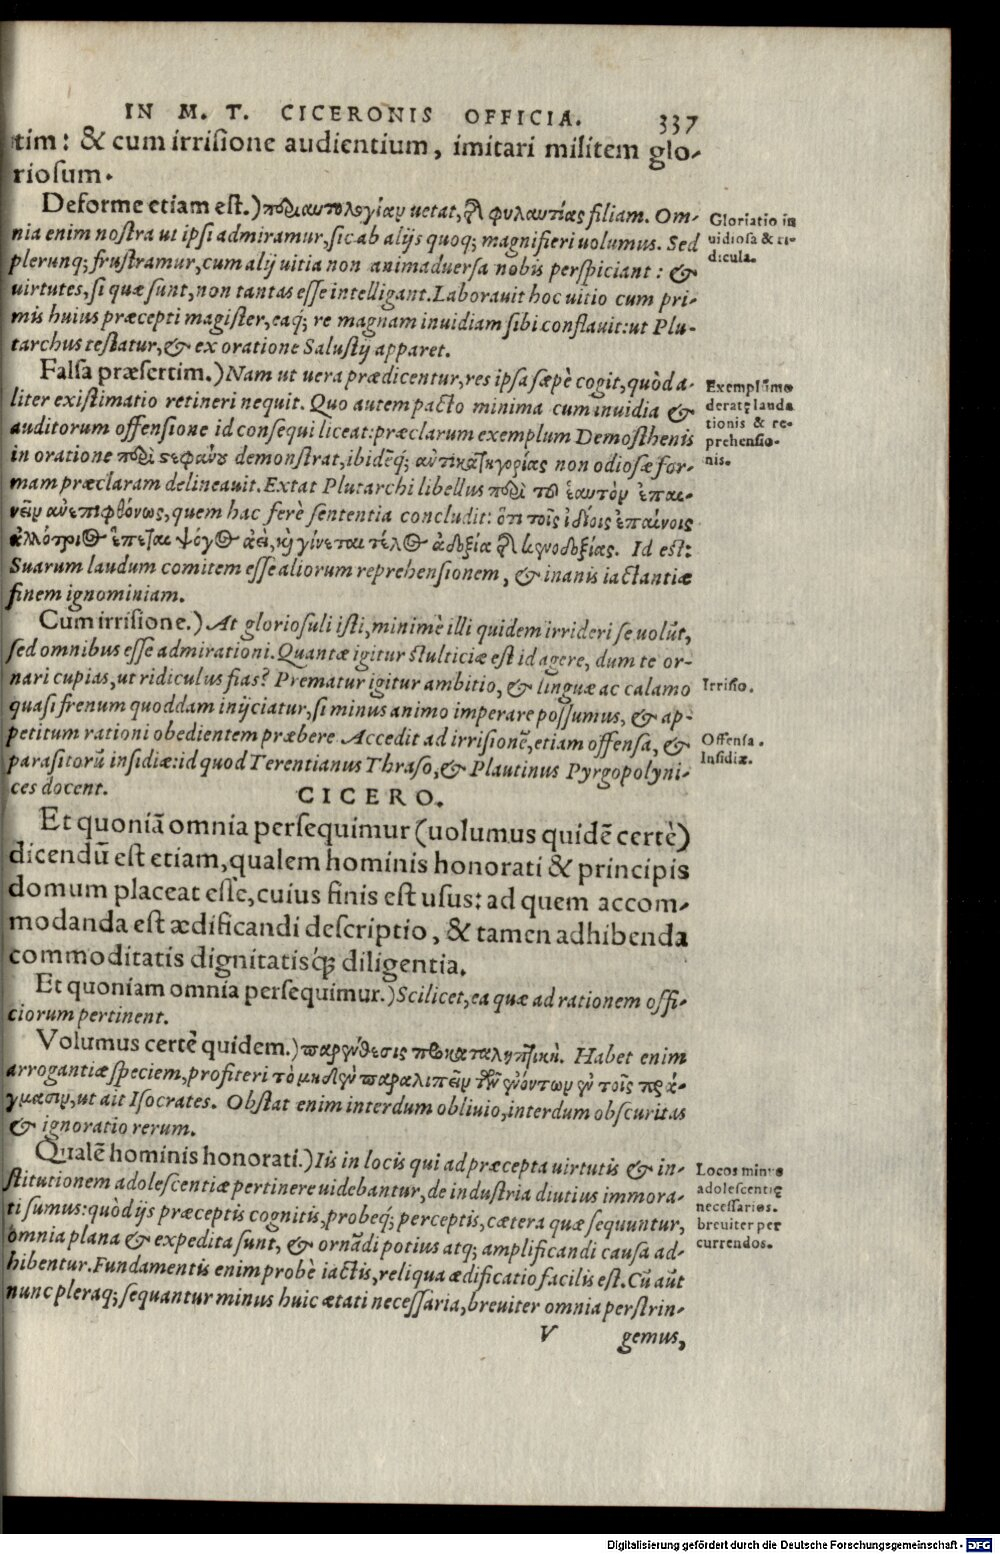 IN M. T. CICERONIS OFFICIA. 337
tim: & cum irrisione audientium, imitari militem glo-
riosum.
Deforme etiam est.) περιαυτολογίαν uetat, τὴν φυλαυτίας filiam. Om-
nia enim nostra ut ipsi admiramur, sic ab alijs quoq; magnifieri uolumus. Sed
plerunq; frustramur, cum alij uitia non animaduersa nobis perspiciant: &
uirtutes, si quæ sunt, non tantas esse intelligant. Laborauit hoc uitio cum pri-
mis huius præcepti magister, eaq; re magnam inuidiam sibi conflauit: ut Plu-
tarchus testatur, & ex oratione Salustij apparet.
Gloriatio in
uidiosa & ri-
dicula.
Falsa præsertim.) Nam ut uera prædicentur, res ipsa sæpè cogit, quòd a-
liter existimatio retineri nequit. Quo autem pacto minima cum inuidia &
auditorum offensione id consequi liceat: præclarum exemplum Demosthenis
in oratione περὶ στεφάνου demonstrat, ibidēq; ἀντικατηγορίας non odiosæ for-
mam præclaram delineauit. Extat Plutarchi libellus περὶ τοῦ ἑαυτὸν ἐπαι-
νεῖν ἀνεπιφθόνως, quem hac ferè sententia concludit: ὅτι τοῖς ἰδίοις ἐπαίνοις
ἀλλότριος ἕπεται ψόγος ἀεὶ, καὶ γίνεται τέλος ἀδοξία τῆς κενοδοξίας. Id est:
Suarum laudum comitem esse aliorum reprehensionem, & inanis iactantiæ
finem ignominiam.
Exemplū mo
deratę lauda
tionis & re-
prehensio-
nis.
Cum irrisione.) At gloriosuli isti, minimè illi quidem irrideri se uolūt,
sed omnibus esse admirationi. Quantæ igitur stulticiæ est id agere, dum te or-
nari cupias, ut ridiculus fias? Prematur igitur ambitio, & linguæ ac calamo
quasi frenum quoddam inijciatur, si minus animo imperare possumus, & ap-
petitum rationi obedientem præbere. Accedit ad irrisionē, etiam offensa, &
parasitorū insidiæ: id quod Terentianus Thraso, & Plautinus Pyrgopolyni-
ces docent.
Irrisio.
Offensa.
Insidiæ.
CICERO.
Et quoniā omnia persequimur (uolumus quidē certè)
dicendū est etiam, qualem hominis honorati & principis
domum placeat esse, cuius finis est usus: ad quem accom-
modanda est ædificandi descriptio, & tamen adhibenda
commoditatis dignitatisq; diligentia.
Et quoniam omnia persequimur.) Scilicet, ea quæ ad rationem offi-
ciorum pertinent.
Volumus certè quidem.) παρένθεσις προκαταληπτική. Habet enim
arrogantiæ speciem, profiteri τὸ μηδὲν παραλιπεῖν τῶν ἐνόντων ἐν τοῖς πρά-
γμασιν, ut ait Isocrates. Obstat enim interdum obliuio, interdum obscuritas
& ignoratio rerum.
Qualē hominis honorati.) Iis in locis qui ad præcepta uirtutis & in-
stitutionem adolescentiæ pertinere uidebantur, de industria diutius immora-
ti sumus: quòd ijs præceptis cognitis, probeq; perceptis, cætera quæ sequuntur,
omnia plana & expedita sunt, & ornādi potius atq; amplificandi causa ad-
hibentur. Fundamentis enim probè iactis, reliqua ædificatio facilis est. Cū aūt
nunc pleraq; sequantur minus huic ætati necessaria, breuiter omnia perstrin-
Locos minus
adolescentię
necessarios.
breuiter per
currendos.
V gemus,
Digitalisierung gefördert durch die Deutsche Forschungsgemeinschaft - DFG